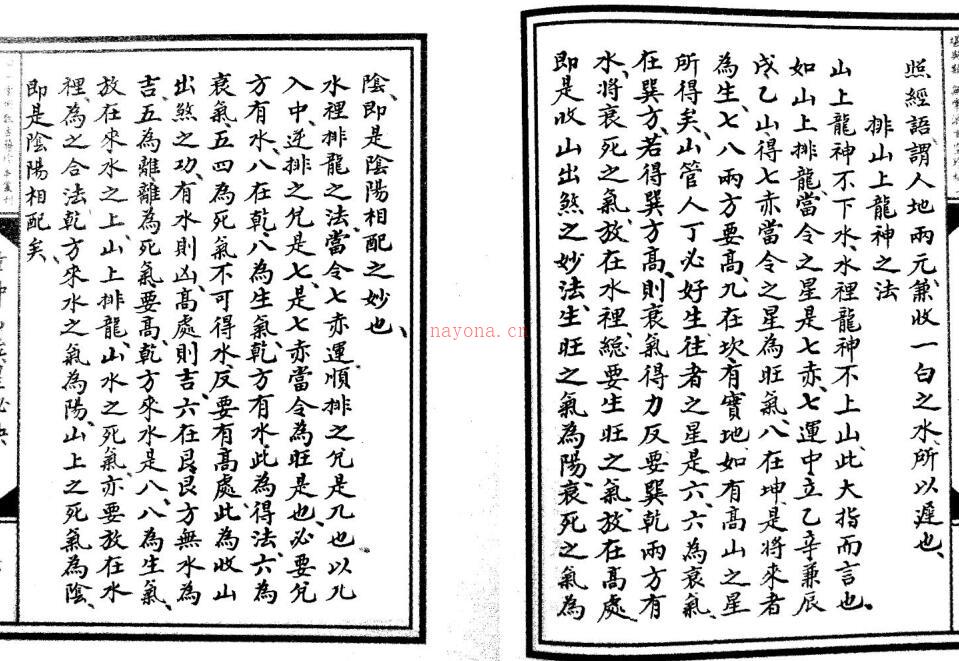 照經語謂人地兩元兼收一白之水、所以遲也、
排山上龍神之法
山上龍神不下水、水裡龍神不上山、此大指而言也。
如山上排龍、當令之星是七赤、七運中立乙辛兼辰
戌乙山、得七赤當令之星為旺氣、八在坤、是將來者
為生、七八兩方要高、九在坎、有實地、如有高山之星
所得矣、山管人丁必好、生往者之星是六、六為衰氣、
在巽方、若得巽方高、則衰氣得力、反要巽乾兩方有
水、將衰死之氣、放在水裡、總要生旺之氣、放在高處、
即是收山出煞之妙法、生旺之氣為陽、衰死之氣為
陰、即是陰陽相配之妙也、
水裡排龍之法、當令七赤運、順排之兌是九也、以九
入中、逆排之兌是七、是七赤當令為旺是也、必要兌
方有水、八在乾、八為生氣、乾方有水、此為得法、六為
衰氣、五四為死氣、不可得水、反要有高處、此為收山
出煞之功、有水則凶、高處則吉、六在艮、艮方無水為
吉、五為離、離為死氣要高、乾方來水是八、八為生氣、
放在來水之上、山上排龍、山水之死氣、亦要放在水
裡、為之合法、乾方來水之氣為陽、山上之死氣為陰、
即是陰陽相配矣、
nayona.cn